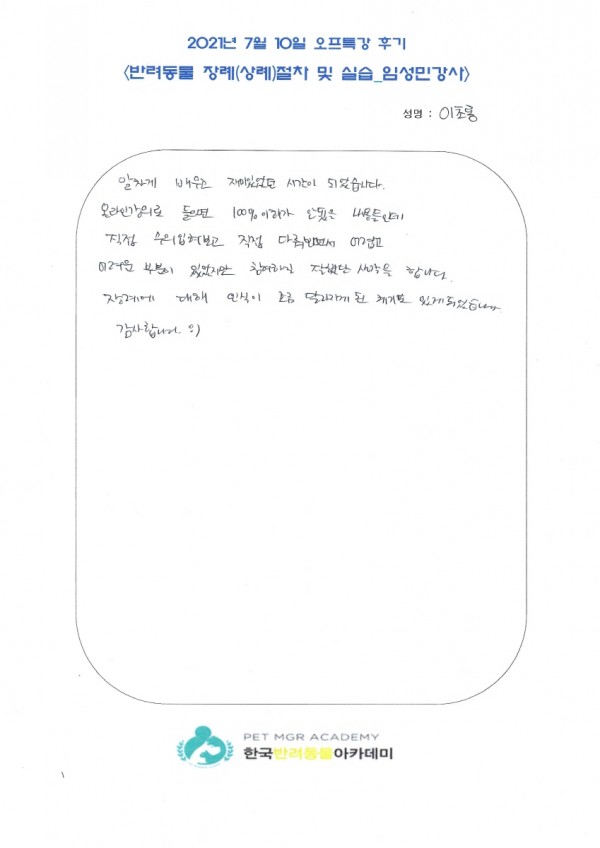 2021년 7월 10일 오프특강 후기
<반려동물 장례(상례)절차 및 실습_임성민강사>
성명 : 이초롱
알차게 배우고 재미있었던 시간이 되었습니다.
온라인강의로 들으면 100%이해가 안됐을 내용들인데
직접 수의입혀보고 직접 다뤄보면서 어렵고
어려운 부분이 있었지만 참여하길 잘했단 생각을 합니다.
장례에 대해 인식이 조금 달라지게 된 계기도 있게되었습니다
감사합니다. :)
PET MGR ACADEMY
한국반려동물아카데미